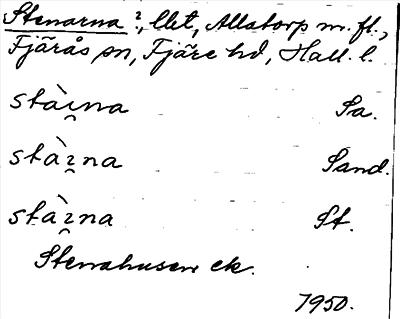 Stenarna ?, llit, Allatorp m. fl.,
Fjärås sn, Fjäre hd, Hall. l.
stàı̯na Sa.
stàı̯na Sand.
stàı̯na St.
Stenahusen ek.
1950.